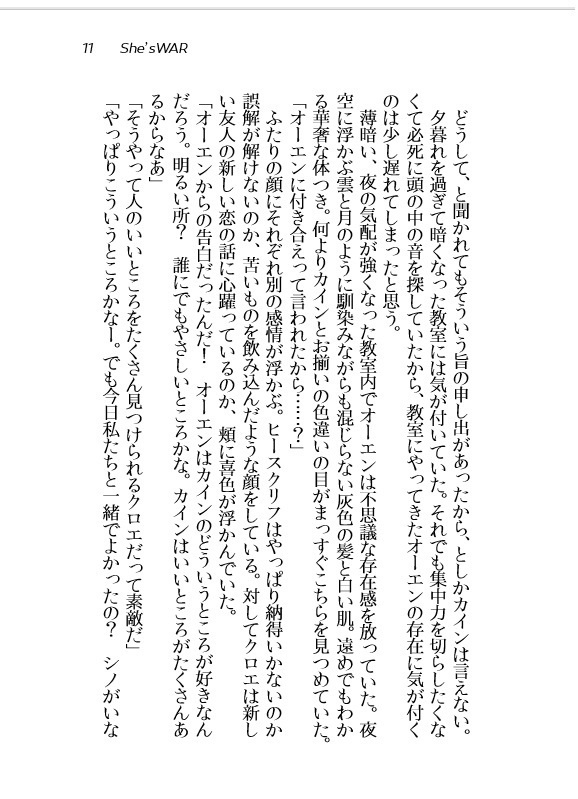 11 She'sWAR
　どうして、と聞かれてもそういう旨の申し出があったから、としかカインは言えない。
　夕暮れを過ぎて暗くなった教室には気が付いていた。それでも集中力を切らしたくな
くて必死に頭の中の音を探していたから、教室にやってきたオーエンの存在に気が付く
のは少し遅れてしまったと思う。
　薄暗い、夜の気配が強くなった教室内でオーエンは不思議な存在感を放っていた。夜
空に浮かぶ雲と月のように馴染みながらも混じらない灰色の髪と白い肌。遠めでもわか
る華奢な体つき。何よりカインとお揃いの色違いの目がまっすぐこちらを見つめていた。
「オーエンに付き合えって言われたから……？」
　ふたりの顔にそれぞれ別の感情が浮かぶ。ヒースクリフはやっぱり納得いかないのか
誤解が解けないのか、苦いものを飲み込んだような顔をしている。対してクロエは新し
い友人の新しい恋の話に心躍っているのか、頬に喜色が浮かんでいた。
「オーエンからの告白だったんだ！　オーエンはカインのどういうところが好きなん
だろう。明るい所？　誰にでもやさしいところかな。カインはいいところがたくさんあ
るからなあ」
「そうやって人のいいところをたくさん見つけられるクロエだって素敵だ」
「やっぱりこういうところかなー。でも今日私たちと一緒でよかったの？　シノがいな